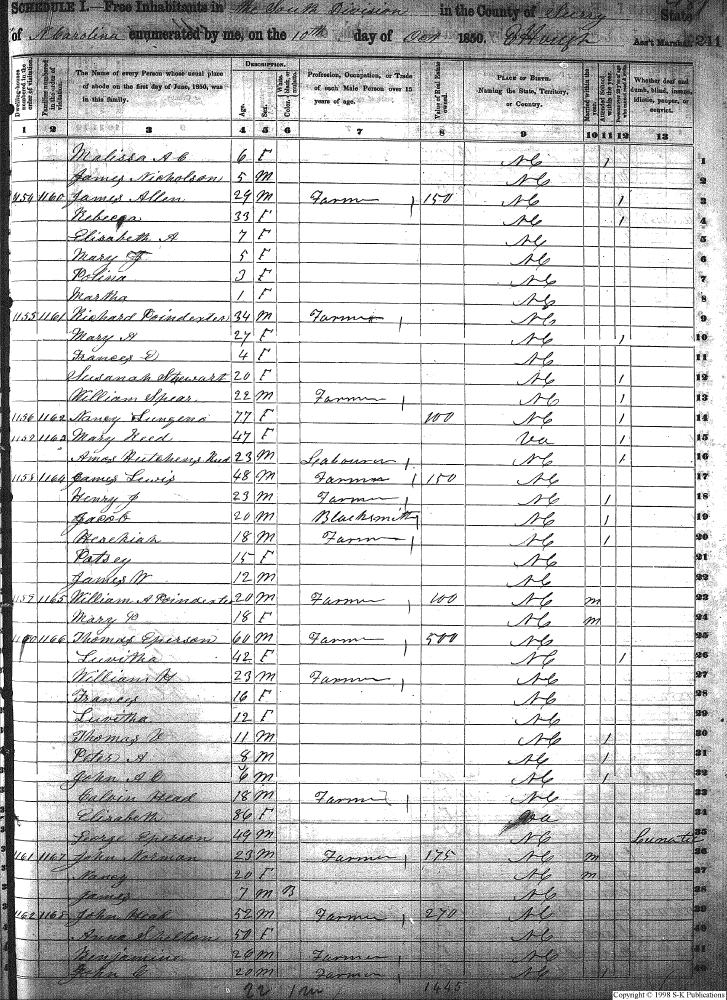 SCHEDULE I.—Free Inhabitants in the South Division in the County of Surry State
of N Carolina enumerated by me, on the 10th day of Oct 1850. Ass't Marshal 241
Dwelling-houses numbered in the order of visitation.
Families numbered in the order of visitation.
The Name of every Person whose usual place of abode on the first day of June, 1850, was in this family.
DESCRIPTION.
Age.
Sex.
Color, White, black, or mulatto.
Profession, Occupation, or Trade of each Male Person over 15 years of age.
Value of Real Estate owned.
PLACE OF BIRTH. Naming the State, Territory, or Country.
Married within the year.
Whether deaf and dumb, blind, insane, idiotic, pauper, or convict.
1 2 3 4 5 6 7 8 9 10 11 12 13
Malissa A C 6 F NC / 1
James Nicholson 5 M NC 2
1154 1160 James Allen 29 M Farmer 150 NC / 3
Rebecca 33 F NC / 4
Elisabeth A 7 F NC 5
Mary J 5 F NC 6
Polina 3 F NC 7
Martha 1 F NC 8
1155 1161 Richard Poindexter 34 M Farmer NC 9
Mary A 27 F NC / 10
Frances E 4 F NC 11
Susanah Stewart 20 F NC / 12
William Spear 22 M Farmer NC / 13
1156 1162 Nancy 77 F 100 NC / 14
1157 1163 Mary Reed 47 F Va / 15
Amos Hutchens Reed 23 M Labourer NC / 16
1158 1164 James Lewis 48 M Farmer 150 NC 17
Henry J 23 M Farmer NC / 18
Jacob 20 M Blacksmith NC / 19
Hezekiah 18 M Farmer NC / 20
Patsey 15 F NC 21
James W 12 M NC 22
1159 1165 William A Poindexter 20 M Farmer 100 NC m 23
Mary 18 F NC m 24
1160 1166 Thomas Eperson 60 M Farmer 500 NC 25
Luvitha 42 F NC / 26
William H 23 M Farmer NC 27
Frances 16 F NC 28
Luvitha 12 F NC 29
Thomas 11 M NC / 30
Peter A 8 M NC / 31
John A C 6 M NC / 32
Calvin Head 18 M Farmer NC 33
Elizabeth 86 F Va 34
George Eperson 49 M NC Lunatic 35
1161 1167 John Norman 23 M Farmer 175 NC m 36
Nancy 20 F NC m 37
James 7 M B NC 38
1162 1168 John Head 52 M Farmer 270 NC 39
Anna Shelton 50 F NC 40
Benjamine 26 M Farmer NC 41
John C 20 M Farmer NC / 42
22 1445
Copyright © 1998 S-K Publications